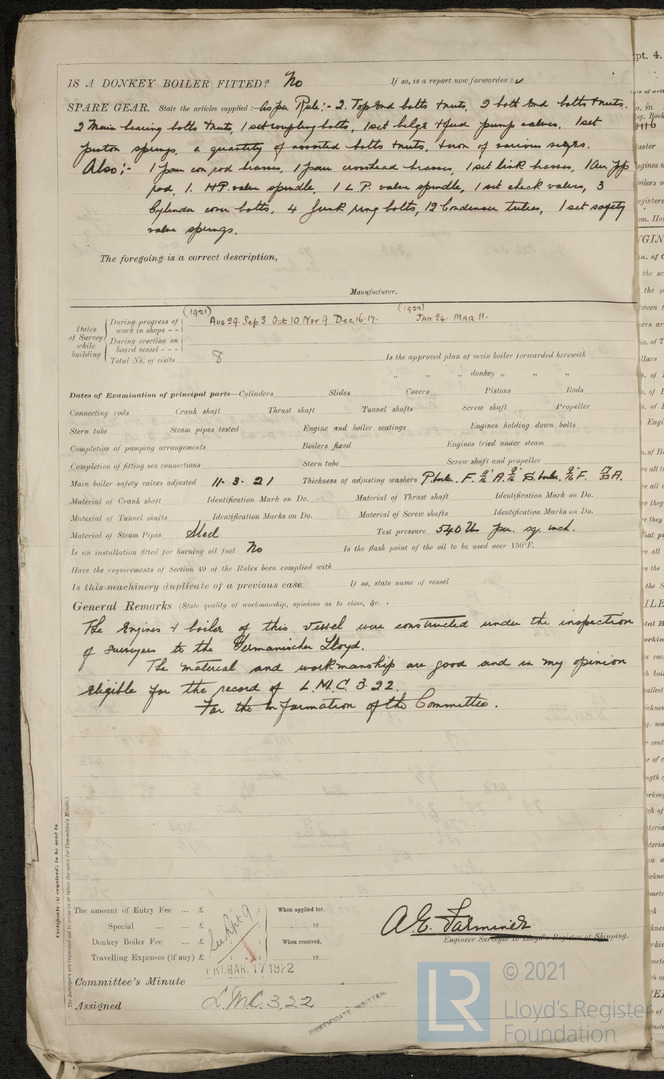 IS A DONKEY BOILER FITTED? No If so, is a report now forwarded?
SPARE GEAR. State the articles supplied:— As per Rule:- 2 Top End bolts & nuts, 2 bott End bolts & nuts.
2 Main bearing bolts & nuts, 1 set coupling bolts, 1 set bilge & feed pump valves. 1 set
piston springs, a quantity of assorted bolts & nuts, & iron of various sizes.
Also:- 1 pair con rod brasses, 1 pair crosshead brasses, 1 set link brasses, 1 Air pp
rod, 1. H.P. valve spindle, 1 L.P. valve spindle, 1 set check valves, 3
Cylinder cover bolts, 4 Junk ring bolts, 12 Condenser tubes, 1 set safety
valve springs.
The foregoing is a correct description,
Manufacturer.
(1921) (1922)
Dates of Survey while building
During progress of work in shops - - Aug 29. Sep 3 Oct 10 Nov 9 Dec 16. 17. Jan 24. Mar 11.
During erection on board vessel - - -
Total No. of visits 8 Is the approved plan of main boiler forwarded herewith
" " " donkey " " "
Dates of Examination of principal parts—Cylinders Slides Covers Pistons Rods
Connecting rods Crank shaft Thrust shaft Tunnel shafts Screw shaft Propeller
Stern tube Steam pipes tested Engine and boiler seatings Engines holding down bolts
Completion of pumping arrangements Boilers fixed Engines tried under steam
Completion of fitting sea connections Stern tube Screw shaft and propeller
Main boiler safety valves adjusted 11. 3. 21 Thickness of adjusting washers P. boiler. F. A. S. boiler. F. A.
Material of Crank shaft Identification Mark on Do. Material of Thrust shaft Identification Mark on Do.
Material of Tunnel shafts Identification Marks on Do. Material of Screw shafts Identification Marks on Do.
Material of Steam Pipes Steel Test pressure 540 lbs per. sq. inch.
Is an installation fitted for burning oil fuel No Is the flash point of the oil to be used over 150°F.
Have the requirements of Section 49 of the Rules been complied with
Is this machinery duplicate of a previous case If so, state name of vessel
General Remarks (State quality of workmanship, opinions as to class, &c.
The Engines & boiler of this vessel were constructed under the inspection
of surveyors to the Germanischer Lloyd.
The material and workmanship are good and in my opinion
eligible for the record of L.M.C. 3. 22.
For the Information of the Committee.
Certificate (if required) to be sent to
The amount of Entry Fee ... £ : : When applied for,
Special ... ... £ : : 19
Donkey Boiler Fee ... £ : : When received,
Travelling Expenses (if any) £ : : 19
See Rpt 9
A. E. Farminer
Engineer Surveyor to Lloyd's Register of Shipping.
Committee's Minute FRI. MAR. 17 1922
Assigned L.M.C. 3,22
CERTIFICATE WRITTEN
© 2021
Lloyd's Register
Foundation
LR